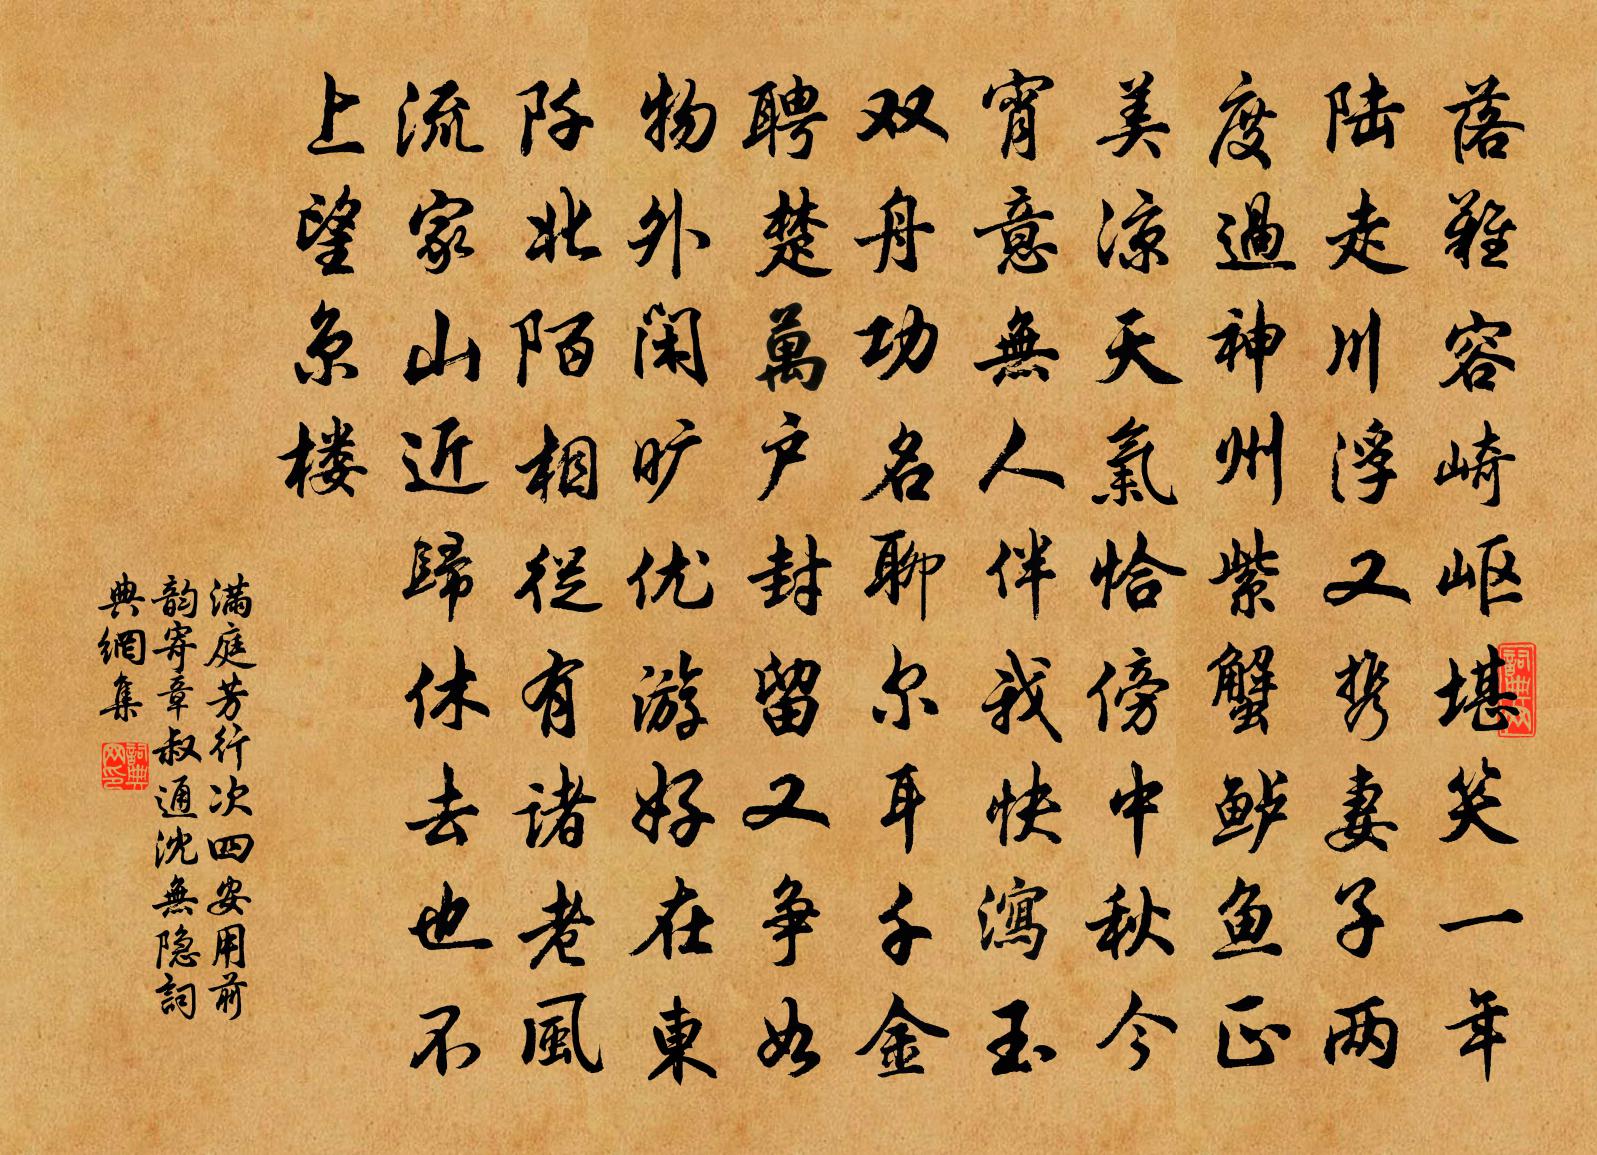 落難容崎岖堪笑一年
陆走川浮又携妻子两
度過神州紫蟹鲈鱼正
美凉天氣恰傍中秋今
宵意無人伴我快瀉玉
双舟功名聊尔耳千金
聘楚萬户封留又争如
物外闲旷优游好在東
阡北陌相從有诸老風
流家山近歸休去也不
上望京楼
满庭芳行次四安用前
韵寄章叔通沈無隐詞
典網集
詞典网
詞典网印